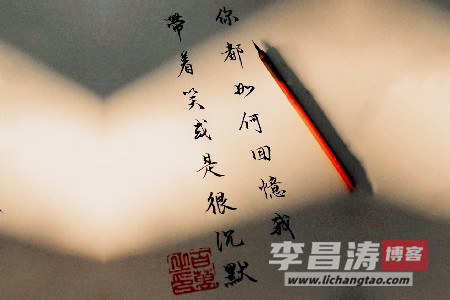 你都如何回憶我
帶着笑或是很沉默
李昌涛博客
www.lichangtao.com